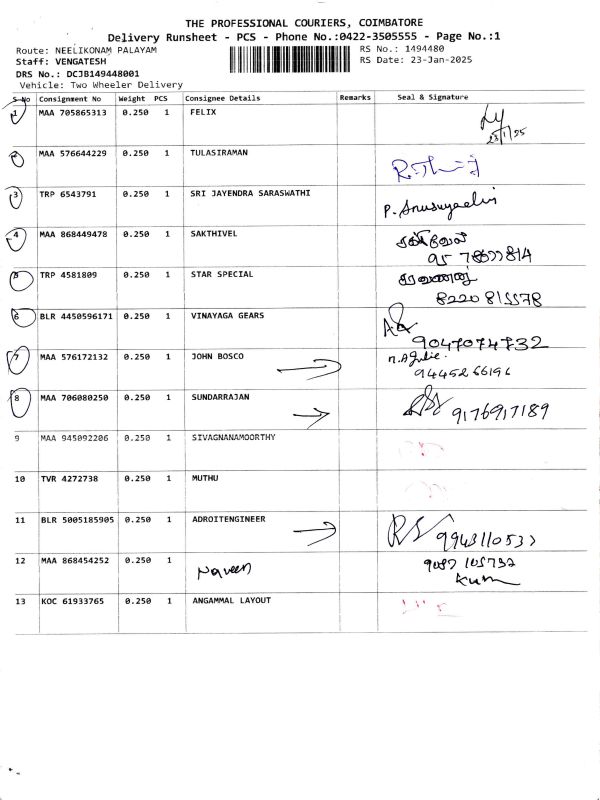 THE PROFESSIONAL COURIERS, COIMBATORE
Delivery Runsheet - PCS - Phone No.:0422-3505555 - Page No.:1
Route: NEELIKONAM PALAYAM RS No.: 1494480
Staff: VENGATESH RS Date: 23-Jan-2025
DRS No.: DCJB149448001
Vehicle: Two Wheeler Delivery
S No Consignment No Weight PCS Consignee Details Remarks Seal & Signature
1 MAA 705865313 0.250 1 FELIX
23/1/25
2 MAA 576644229 0.250 1 TULASIRAMAN
3 TRP 6543791 0.250 1 SRI JAYENDRA SARASWATHI
4 MAA 868449478 0.250 1 SAKTHIVEL சக்திவேல்
5 TRP 4581809 0.250 1 STAR SPECIAL சரவணன்
6 BLR 4450596171 0.250 1 VINAYAGA GEARS
9047074732
7 MAA 576172132 0.250 1 JOHN BOSCO
9445266196
8 MAA 706080250 0.250 1 SUNDARRAJAN
9176917189
9 MAA 945092206 0.250 1 SIVAGNANAMOORTHY
10 TVR 4272738 0.250 1 MUTHU
11 BLR 5005185905 0.250 1 ADROITENGINEER
12 MAA 868454252 0.250 1 Naveen
Kum
13 KOC 61933765 0.250 1 ANGAMMAL LAYOUT